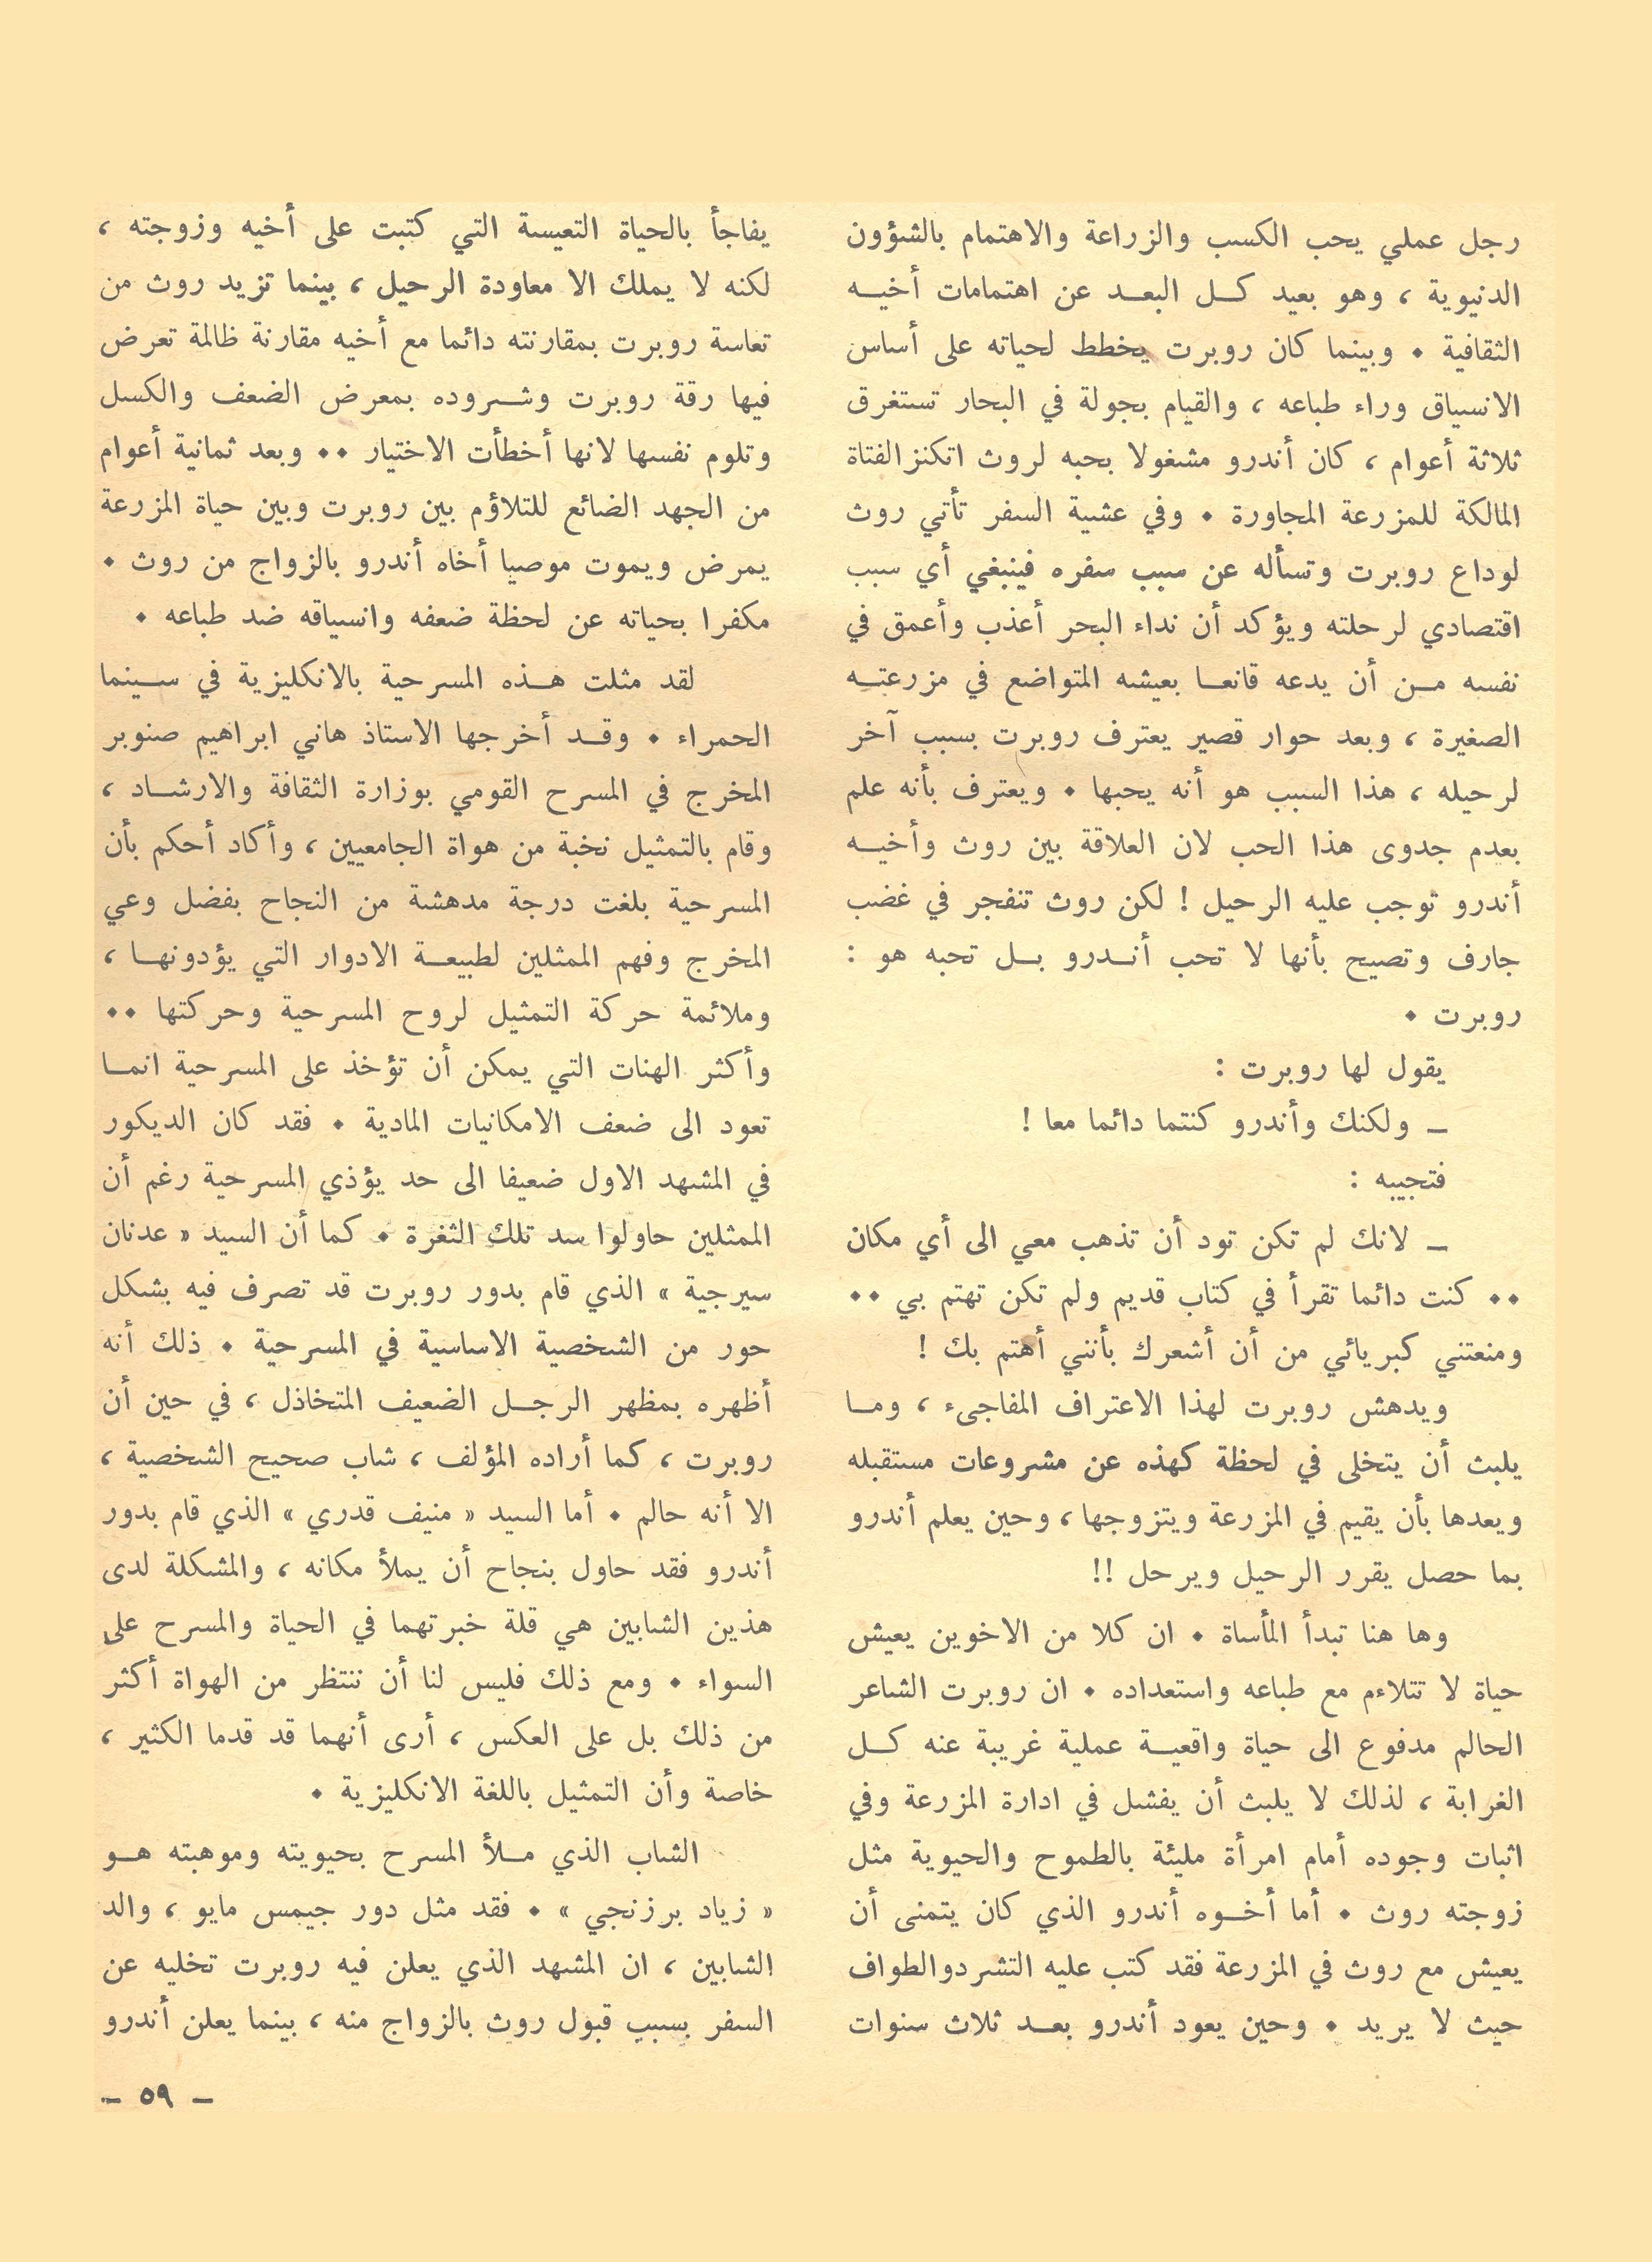 رجل عملي يحب الكسب والزراعة والاهتمام بالشؤون
الدنيوية ، وهو بعيد كل البعد عن اهتمامات أخيه
الثقافية . وبينما كان روبرت يخطط لحياته على أساس
الانسياق وراء طباعه ، والقيام بجولة في البحار تستغرق
ثلاثة أعوام ، كان أندرو مشغولا بحبه لروث اتكنز الفتاة
المالكة للمزرعة المجاورة . وفي عشية السفر تأتي روث
لوداع روبرت وتسأله عن سبب سفره فينبغي أي سبب
اقتصادي لرحلته ويؤكد أن نداء البحر أعذب وأعمق في
نفسه من أن يدعه قانعا بعيشه المتواضع في مزرعته
الصغيرة ، وبعد حوار قصير يعترف روبرت بسبب آخر
لرحيله ، هذا السبب هو أنه يحبها . ويعترف بأنه علم
بعدم جدوى هذا الحب لان العلاقة بين روث وأخيه
أندرو توجب عليه الرحيل ! لكن روث تنفجر في غضب
جارف وتصيح بأنها لا تحب أندرو بل تحبه هو :
روبرت .
يقول لها روبرت :
ــ ولكنك وأندرو كنتما دائما معا !
فتجيبه :
ــ لانك لم تكن تود أن تذهب معي الى أي مكان
.. كنت دائما تقرأ في كتاب قديم ولم تكن تهتم بي ..
ومنعتني كبريائي من أن أشعرك بأنني أهتم بك !
ويدهش روبرت لهذا الاعتراف المفاجىء ، وما
يلبث أن يتخلى في لحظة كهذه عن مشروعات مستقبله
ويعدها بأن يقيم في المزرعة ويتزوجها ، وحين يعلم أندرو
بما حصل يقرر الرحيل ويرحل !!
وها هنا تبدأ المأساة . ان كلا من الاخوين يعيش
حياة لا تتلاءم مع طباعه واستعداده . ان روبرت الشاعر
الحالم مدفوع الى حياة واقعية عملية غريبة عنه كل
الغرابة ، لذلك لا يلبث أن يفشل في ادارة المزرعة وفي
اثبات وجوده أمام امرأة مليئة بالطموح والحيوية مثل
زوجته روث . أما أخوه أندرو الذي كان يتمنى أن
يعيش مع روث في المزرعة فقد كتب عليه التشرد والطواف
حيث لا يريد . وحين يعود أندرو بعد ثلاث سنوات
يفاجأ بالحياة التعيسة التي كتبت على أخيه وزوجته ،
لكنه لا يملك الا معاودة الرحيل ، بينما تزيد روث من
تعاسة روبرت بمقارنته دائما مع أخيه مقارنة ظالمة تعرض
فيها رقة روبرت وشروده بمعرض الضعف والكسل
وتلوم نفسها لانها أخطأت الاختيار .. وبعد ثمانية أعوام
من الجهد الضائع للتلاؤم بين روبرت وبين حياة المزرعة
يمرض ويموت موصيا أخاه أندرو بالزواج من روث .
مكفرا بحياته عن لحظة ضعفه وانسياقه ضد طباعه .
لقد مثلت هذه المسرحية بالانكليزية في سينما
الحمراء . وقد أخرجها الاستاذ هاني ابراهيم صنوبر
المخرج في المسرح القومي بوزارة الثقافة والارشاد ،
وقام بالتمثيل نخبة من هواة الجامعيين ، وأكاد أحكم بأن
المسرحية بلغت درجة مدهشة من النجاح بفضل وعي
المخرج وفهم الممثلين لطبيعة الادوار التي يؤدونها ،
وملائمة حركة التمثيل لروح المسرحية وحركتها ..
وأكثر الهنات التي يمكن أن تؤخذ على المسرحية انما
تعود الى ضعف الامكانيات المادية . فقد كان الديكور
في المشهد الاول ضعيفا الى حد يؤذي المسرحية رغم أن
الممثلين حاولوا سد تلك الثغرة . كما أن السيد « عدنان
سيرجية » الذي قام بدور روبرت قد تصرف فيه بشكل
حور من الشخصية الاساسية في المسرحية . ذلك أنه
أظهره بمظهر الرجل الضعيف المتخاذل ، في حين أن
روبرت ، كما أراده المؤلف ، شاب صحيح الشخصية ،
الا أنه حالم . أما السيد « منيف قدري » الذي قام بدور
أندرو فقد حاول بنجاح أن يملأ مكانه ، والمشكلة لدى
هذين الشابين هي قلة خبرتهما في الحياة والمسرح على
السواء . ومع ذلك فليس لنا أن ننتظر من الهواة أكثر
من ذلك بل على العكس ، أرى أنهما قد قدما الكثير ،
خاصة وأن التمثيل باللغة الانكليزية .
الشاب الذي ملأ المسرح بحيويته وموهبته هو
« زياد برزنجي » . فقد مثل دور جيمس مايو ، والد
الشابين ، ان المشهد الذي يعلن فيه روبرت تخليه عن
السفر بسبب قبول روث بالزواج منه ، بينما يعلن أندرو
ــ ٥٩ ــ